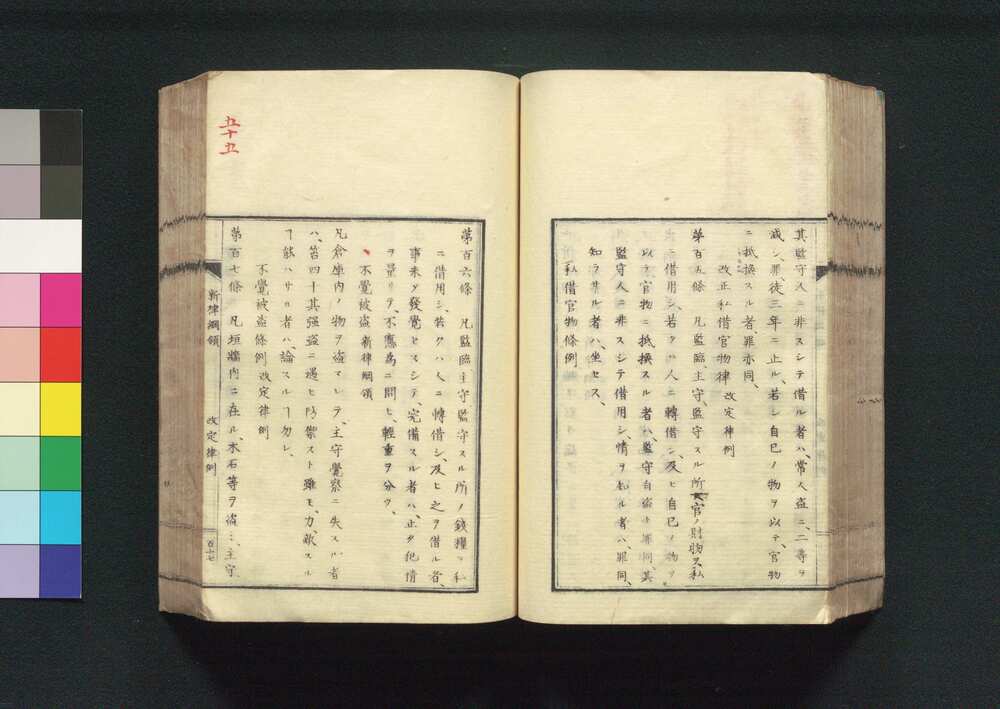 其監守人ニ非スシテ借ル者ハ、常人盗ニ、二等ヲ
減シ、罪、徒三年ニ止ル、若シ自己ノ物ヲ以テ、官物
ニ抵換スル者罪亦同、
改正私借官物律 改定律例
第百五條 凡監臨、主守、監守スル所ノ官ノ財物ヲ私
ニ借用シ、若クハ人ニ轉借シ、及ヒ自己ノ物ヲ
以テ官物ニ抵換スル者ハ、監守自盗ト罪同、其
監守人ニ非スシテ借用シ、情ヲ知ル者ハ罪同、
知ラサル者ハ、坐セス、
私借官物條例
第百六條 凡監臨、主守監守スル所ノ錢糧ヲ私
ニ借用シ、若クハ人ニ轉借シ、及ヒ之ヲ借ル者、
事未タ發覺セスシテ、完備スル者ハ、止タ犯情
ヲ量リテ、不應為ニ問ヒ、輕重ヲ分ツ、
不覺被盗 新律綱領
凡倉庫内ノ物ヲ盗マレテ、主守覺察ニ失スル者
ハ、笞四十其強盗ニ遇ヒ防禦スト雖モ、力、敵スル
ヿ能ハサル者ハ、論スルヿ勿レ、
不覺被盗條例 改定律例
第百七條 凡垣墻内ニ在ル、木石等ヲ盗ミ、主守、
新律綱領 改定律例
五十五